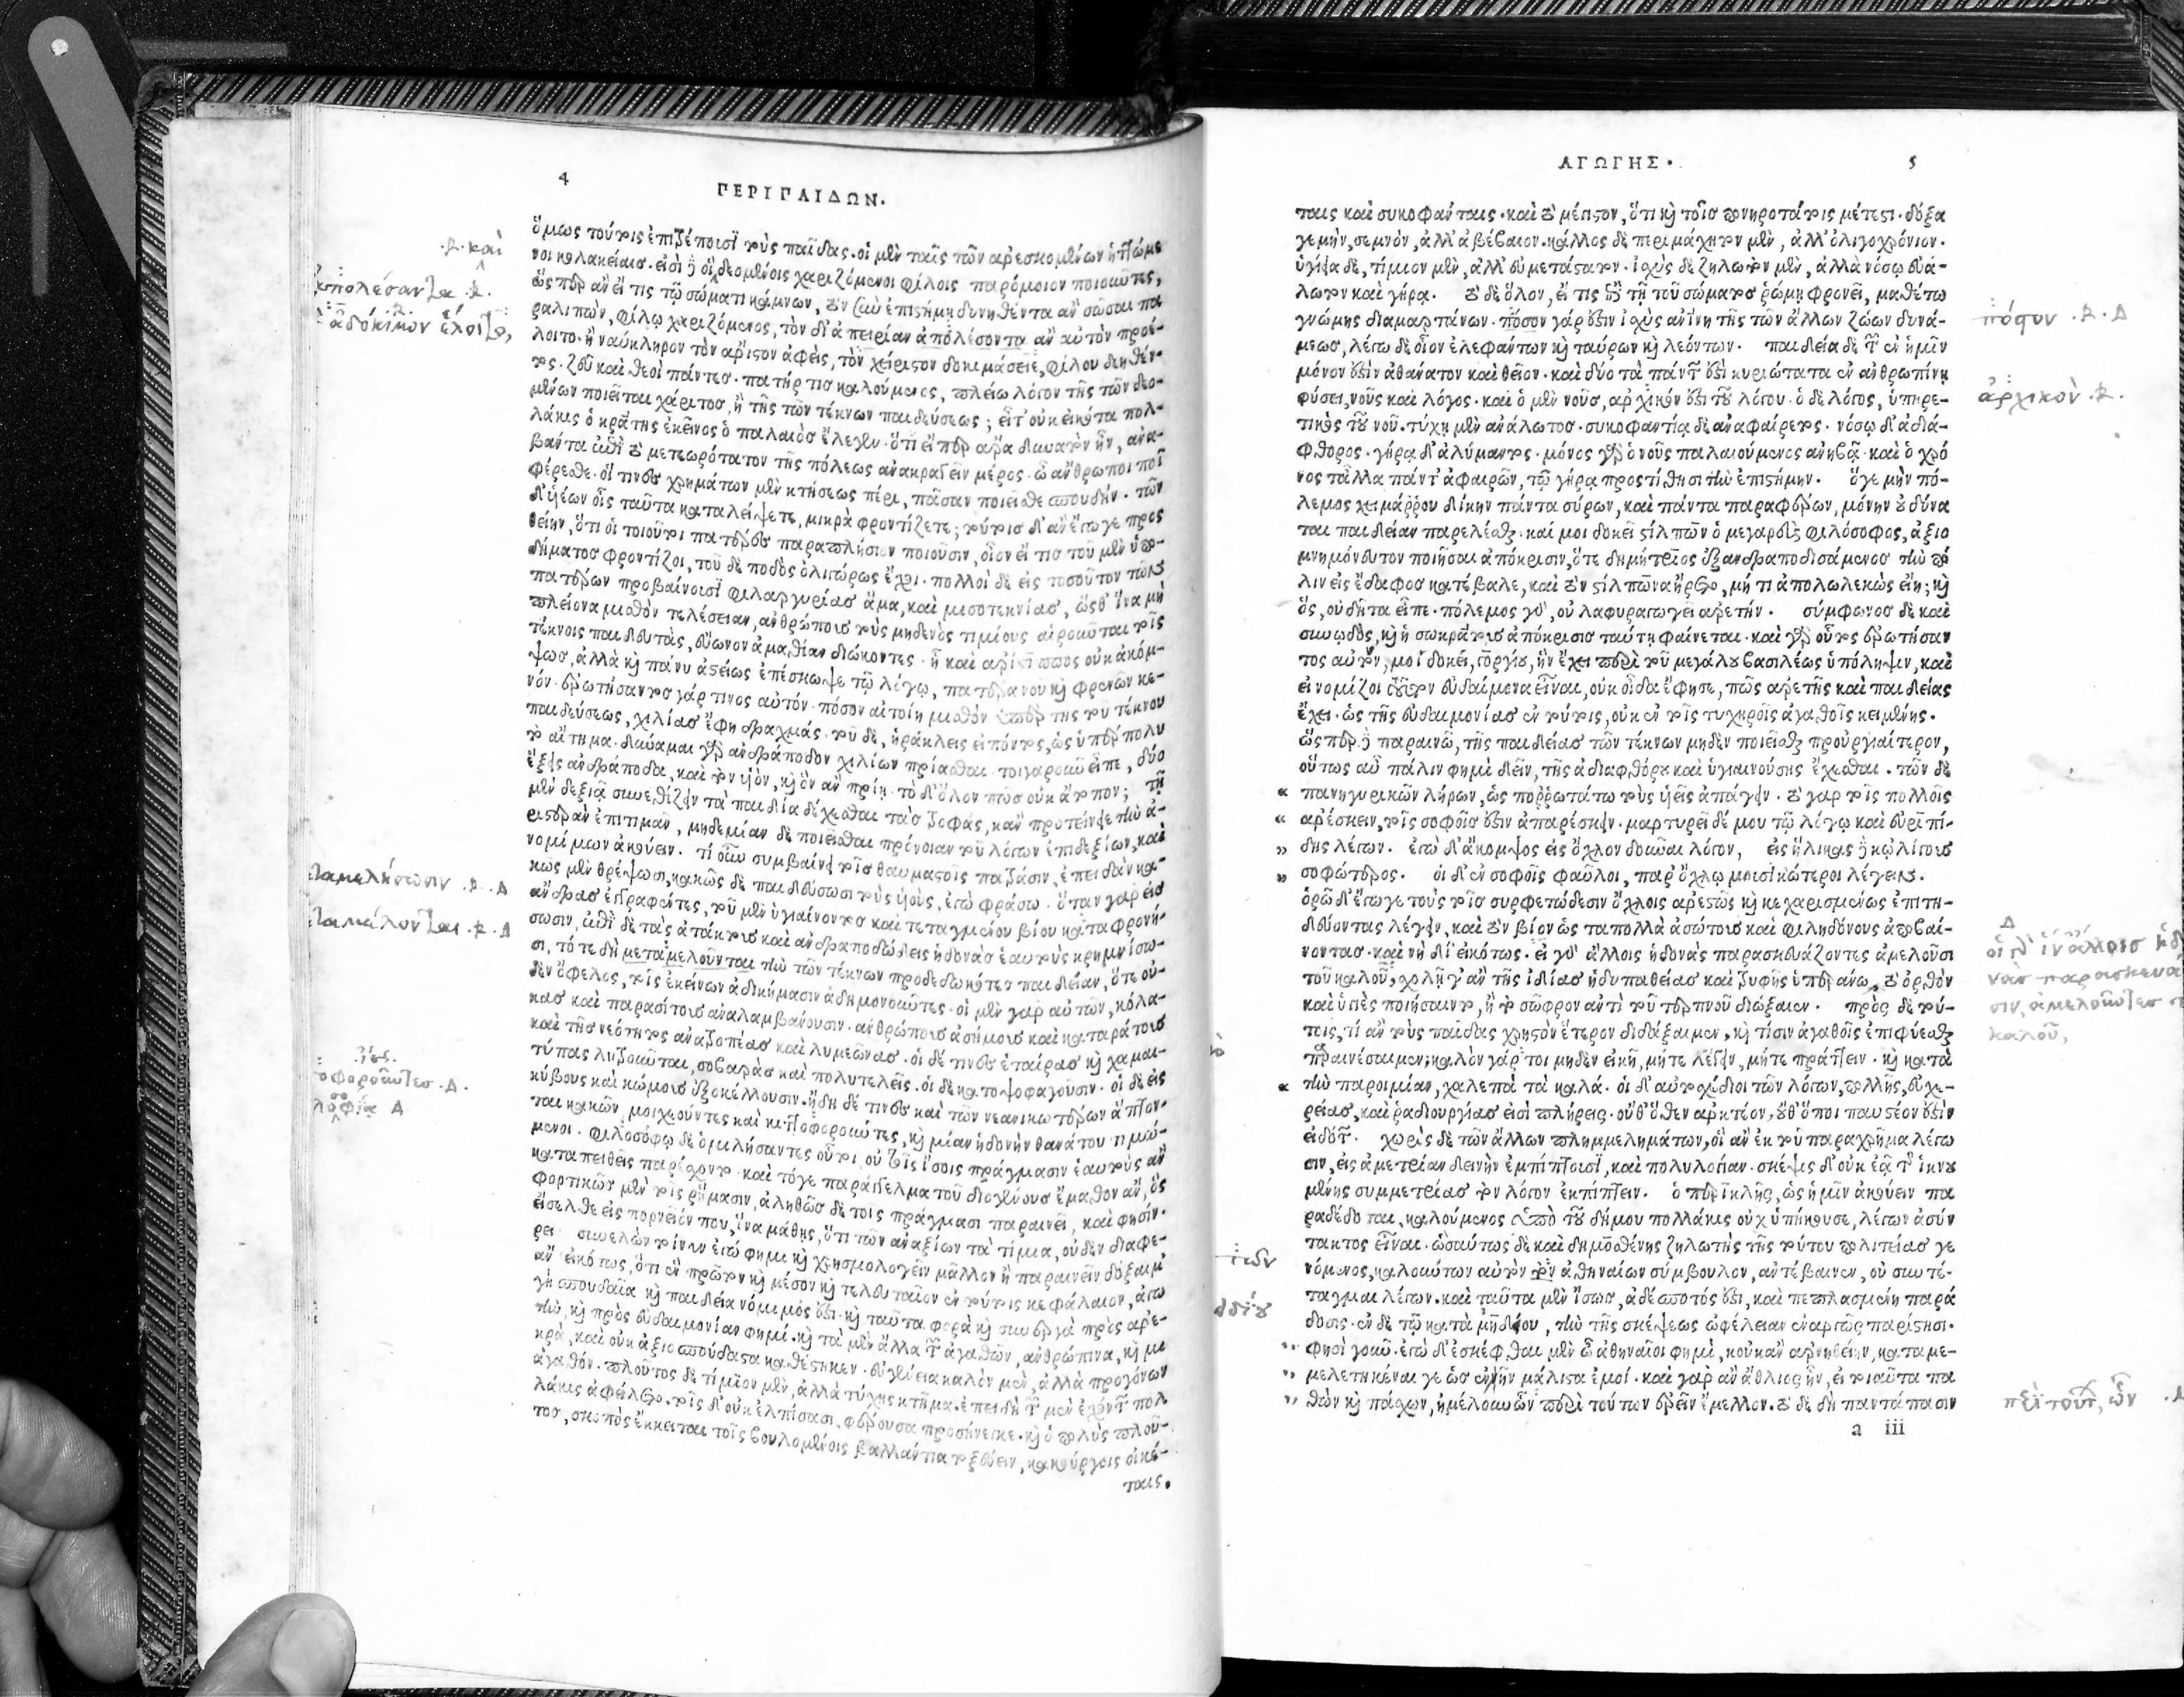 4
ΠΕΡΙ ΠΑΙΔΩΝ.
ὅμως τούτοις ἐπιτρέπουσι τοὺς παῖδας. οἱ μὲν ταῖς τῶν ἀρεσκομένων ἡττώμε
νοι κολακείαις. εἰσὶ δὲ οἳ δεομένοις χαριζόμενοι φίλοις παρόμοιον ποιοῦντες,
ὥσπερ ἂν εἴ τις τῷ σώματι κάμνων, τὸν σὺν ἐπιστήμῃ δυνηθέντα ἂν σῶσαι πα
ραλιπὼν, φίλῳ χαριζόμενος, τὸν δι' ἀπειρίαν ἀπολέσοντα ἂν αὐτὸν προέ-
λοιτο. ἢ ναύκληρον τὸν ἄριστον ἀφεὶς, τὸν χείριστον δοκιμάσειε, φίλου δεηθέν-
τος. ζεῦ καὶ θεοὶ πάντες. πατήρ τις καλούμενος, πλείω λόγον τῆς τῶν δεο-
μένων ποιεῖται χάριτος, ἢ τῆς τῶν τέκνων παιδεύσεως; εἶτ' οὐκ εἰκότα πολ-
λάκις ὁ κράτης ἐκεῖνος ὁ παλαιὸς ἔλεγεν. ὅτι εἴπερ ἄρα δυνατὸν ἦν, ἀνα-
βάντα ἐπὶ τὸ μετεωρότατον τῆς πόλεως ἀνακραγεῖν μέρος. ὦ ἄνθρωποι ποῖ
φέρεσθε. οἵ τινες χρημάτων μὲν κτήσεως πέρι, πᾶσαν ποιεῖσθε σπουδήν. τῶν
δ' υἱέων οἷς ταῦτα καταλείψετε, μικρὰ φροντίζετε; τούτοις δ' ἂν ἔγωγε προς
θείην, ὅτι οἱ τοιοῦτοι πατέρες παραπλήσιον ποιοῦσιν, οἷον εἴ τις τοῦ μὲν ὑπο-
δήματος φροντίζοι, τοῦ δὲ ποδὸς ὀλιγώρως ἔχοι. πολλοὶ δὲ εἰς τοσοῦτον τῶν
πατέρων προβαίνουσι φιλαργυρίας ἅμα, καὶ μισοτεκνίας, ὥσθ' ἵνα μὴ
πλείονα μισθὸν τελέσειαν, ἀνθρώπους τοὺς μηδενὸς τιμίους αἱροῦνται τοῖς
τέκνοις παιδευτὰς, εὔωνον ἀμαθίαν διώκοντες. ᾗ καὶ ἀρίστιππος οὐκ ἀκόμ-
ψως, ἀλλὰ καὶ πάνυ ἀστείως ἐπέσκωψε τῷ λόγῳ, πατέρα νοῦ καὶ φρενῶν κε-
νόν. ἐρωτήσαντος γάρ τινος αὐτόν. πόσον αἰτοίη μισθὸν ὑπὲρ της τοῦ τέκνου
παιδεύσεως, χιλίας ἔφη δραχμάς. τοῦ δὲ, ἡράκλεις εἰπόντος, ὡς ὑπέρπολυ
τὸ αἴτημα. δύναμαι γὰρ ἀνδράποδον χιλίων πρίασθαι. τοιγαροῦν εἶπε, δύο
ἕξεις ἀνδράποδα, καὶ τὸν υἱὸν, καὶ ὃν ἂν πρίῃ. τὸ δ' ὅλον πῶς οὐκ ἄτοπον; τῇ
μὲν δεξιᾷ συνεθίζειν τὰ παιδία δέχεσθαι τὰς τροφάς, κἂν προτείνειε τὴν ἀ-
ριστερὰν ἐπιτιμᾶν, μηδεμίαν δὲ ποιεῖσθαι πρόνοιαν τοῦ λόγων ἐπιδεξίων, καὶ
νομίμων ἀκούειν. τί οὖν συμβαίνει τοῖς θαυμαστοῖς πατράσιν, ἐπειδὰν κα-
κῶς μὲν θρέψωσι, κακῶς δὲ παιδεύσωσι τοὺς υἱοὺς, ἐγὼ φράσω. ὅταν γὰρ εἰς
ἄνδρας ἐγγραφέντες, τοῦ μὲν ὑγιαίνοντος καὶ τεταγμένου βίου καταφρονή-
σωσιν, ἐπὶ δὲ τὰς ἀτάκτους καὶ ἀνδραποδώδεις ἡδονὰς ἑαυτοὺς κρημνίσω-
σι, τότε δὴ μεταμελοῦνται τὴν τῶν τέκνων προδεδωκότες παιδείαν, ὅτε οὐ-
δὲν ὄφελος, τοῖς ἐκείνων ἀδικήμασιν ἀδημονοῦντες. οἱ μὲν γὰρ αὐτῶν, κόλα-
κας καὶ παρασίτους ἀναλαμβάνουσιν. ἀνθρώπους ἀσήμους καὶ καταράτους
καὶ τῆς νεότητος ἀνατροπέας καὶ λυμεῶνας. οἱ δέ τινες ἑταίρας καὶ χαμαι-
τύπας λυτροῦνται, σοβαρὰς καὶ πολυτελεῖς. οἱ δὲ κατοψοφαγοῦσιν. οἱ δὲ εἰς
κύβους καὶ κώμους ἐξοκέλλουσιν. ἤδη δέ τινες καὶ τῶν νεανικωτέρων ἅπτον-
ται κακῶν, μοιχεύοντες καὶ κιττοφοροῦντες, καὶ μίαν ἡδονὴν θανάτου τιμώ-
μενοι. φιλοσόφῳ δὲ ὁμιλήσαντες οὗτοι, οὐ τοῖς ἴσοις πράγμασιν ἑαυτοὺς ἂν
καταπειθεῖς παρέχοντο. καὶ τόγε παράγγελμα τοῦ διογένους ἔμαθον ἂν, ὃς
φορτικῶς μὲν τοῖς ῥήμασιν, ἀληθῶς δὲ τοις πράγμασι παραινεῖ, καὶ φησίν.
εἴσελθε εἰς πορνεῖόν που, ἵνα μάθῃς, ὅτι τῶν ἀναξίων τὰ τίμια, οὐδὲν διαφέ-
ρει συνελὼν τοίνυν ἐγώ φημι καὶ χρησμολογεῖν μᾶλλον ἢ παραινεῖν δόξαιμ'
ἂν εἰκότως, ὅτι ἓν πρῶτον καὶ μέσον καὶ τελευταῖον ἐν τούτοις κεφάλαιον, ἀγω
γὴ σπουδαία καὶ παιδεία νόμιμός ἐστι. καὶ ταῦτα φορὰ καὶ συνεργὰ πρὸς ἀρε-
τὴν, καὶ πρὸς εὐδαιμονίαν φημί. καὶ τὰ μὲν ἄλλα τῶν ἀγαθῶν, ἀνθρώπινα, καὶ μι
κρὰ, καὶ οὐκ ἀξιοσπούδαστα καθέστηκεν. εὐγένεια καλὸν μὲν, ἀλλὰ προγόνων
ἀγαθόν. πλοῦτος δὲ τίμιον μὲν, ἀλλὰ τύχης κτῆμα. ἐπειδὴ τῶν μὲν ἐχόντων πολ
λάκις ἀφείλετο. τοῖς δ' οὐκ ἐλπίσασι, φέρουσα προσήνεικε. καὶ ὁ πολὺς πλοῦ-
τος, σκοπὸς ἔκκειται τοῖς βουλομένοις βαλλάντια τοξεύειν, κακούργοις οἰκέ-
ταις.
.R. καὶ
ἀδόκιμον ἕλοιτο,
ΑΓΩΓΗΣ.
5
ταις καὶ συκοφάνταις. καὶ τὸ μέγιστον, ὅτι καὶ τοῖς πονηροτάτοις μέτεστι. δόξα
γε μὴν, σεμνὸν, ἀλλ' ἀβέβαιον. κάλλος δὲ περιμάχητον μὲν, ἀλλ' ὀλιγοχρόνιον.
ὑγίεια δὲ, τίμιον μὲν, ἀλλ' εὐμετάστατον. ἰσχὺς δὲ ζηλωτὸν μὲν, ἀλλὰ νόσῳ εὐά-
λωτον καὶ γήρᾳ. τὸ δὲ ὅλον, εἴ τις ἐπὶ τῇ τοῦ σώματος ῥώμῃ φρονεῖ, μαθέτω
γνώμης διαμαρτάνων. πόσον γάρ ἐστιν ἰσχὺς ἀνθίνη τῆς τῶν ἄλλων ζώων δυνά-
μεως, λέγω δὲ οἷον ἐλεφάντων καὶ ταύρων καὶ λεόντων. παιδεία δὲ τῶν ἐν ἡμῖν
μόνον ἐστὶν ἀθάνατον καὶ θεῖον. καὶ δύο τὰ πάντων ἐστὶ κυριώτατα ἐν ἀνθρωπίνῃ
φύσει, νοῦς καὶ λόγος. καὶ ὁ μὲν νοῦς, ἀρχικόν ἐστι τοῦ λόγου. ὁ δὲ λόγος, ὑπηρε-
τικὸς τοῦ νοῦ. τύχῃ μὲν ἀνάλωτος. συκοφαντίᾳ δὲ ἀναφαίρετος. νόσῳ δ' ἀδιά-
φθορος. γήρᾳ δ' ἀλύμαντος. μόνος γὰρ ὁ νοῦς παλαιούμενος ἀνηβᾷ. καὶ ὁ χρό
νος τἆλλα πάντ' ἀφαιρῶν, τῷ γήρᾳ προστίθησι τὴν ἐπιστήμην. ὅγε μὴν πό-
λεμος χειμάρρου δίκην πάντα σύρων, καὶ πάντα παραφέρων, μόνην οὐ δύνα
ται παιδείαν παρελέσθαι. καί μοι δοκεῖ στίλπων ὁ μεγαρεὺς φιλόσοφος, ἀξιο
μνημόνευτον ποιῆσαι ἀπόκρισιν, ὅτε δημήτριος ἐξανδραποδισάμενος τὴν πό
λιν εἰς ἔδαφος κατέβαλε, καὶ τὸν στίλπωνα ἤρετο, μή τι ἀπολωλεκὼς εἴη; καὶ
ὃς, οὐ δῆτα εἶπε. πόλεμος γὰρ, οὐ λαφυραγωγεῖ ἀρετήν. σύμφωνος δὲ καὶ
συνῳδὸς, καὶ ἡ σωκράτους ἀπόκρισις ταύτῃ φαίνεται. καὶ γὰρ οὗτος ἐρωτήσαν
τος αὐτὸν, μοὶ δοκεῖ, γοργίου, ἣν ἔχει περὶ τοῦ μεγάλου βασιλέως ὑπόληψιν, καὶ
εἰ νομίζοι τοῦτον εὐδαίμονα εἶναι, οὐκ οἶδα ἔφησε, πῶς ἀρετῆς καὶ παιδείας
ἔχει. ὡς τῆς εὐδαιμονίας ἐν τούτοις, οὐκ ἐν τοῖς τυχηροῖς ἀγαθοῖς κειμένης.
ὥσπερ δὲ παραινῶ, τῆς παιδείας τῶν τέκνων μηδὲν ποιεῖσθαι προὐργιαίτερον,
οὕτως αὖ πάλιν φημὶ δεῖν, τῆς ἀδιαφθόρου καὶ ὑγιαινούσης ἔχεσθαι. τῶν δὲ
« πανηγυρικῶν λήρων, ὡς πορρωτάτω τοὺς υἱεῖς ἀπάγειν. τὸ γὰρ τοῖς πολλοῖς
« ἀρέσκειν, τοῖς σοφοῖς ἐστιν ἀπαρέσκειν. μαρτυρεῖ δέ μου τῷ λόγῳ καὶ εὐριπί-
» δης λέγων. ἐγὼ δ' ἄκομψος εἰς ὄχλον δοῦναι λόγον, εἰς ἥλικας δὲ κᾠλίγους
» σοφώτερος. οἱ δ' ἐν σοφοῖς φαῦλοι, παρ' ὄχλῳ μουσικώτεροι λέγειν.
ὁρῶ δ' ἔγωγε τοὺς τοῖς συρφετώδεσιν ὄχλοις ἀρεστῶς καὶ κεχαρισμένως ἐπιτη-
δεύοντας λέγειν, καὶ τὸν βίον ὡς ταπολλὰ ἀσώτους καὶ φιληδόνους ἀποβαί-
νοντας. καὶ νὴ δί' εἰκότως. εἰ γὰρ ἄλλοις ἡδονὰς παρασκευάζοντες ἀμελοῦσι
τοῦ καλοῦ, σχολῇ γ' ἂν τῆς ἰδίας ἡδυπαθείας καὶ τρυφῆς ὑπεράνω, τὸ ὀρθὸν
καὶ ὑγιὲς ποιήσαιντο, ἢ τὸ σῶφρον ἀντὶ τοῦ τερπνοῦ διώξαιεν. πρὸς δὲ τού-
τοις, τί ἂν τοὺς παῖδας χρηστὸν ἕτερον διδάξαιμεν, καὶ τίσιν ἀγαθοῖς ἐπιφύεσθαι
παραινέσαιμεν; καλὸν γάρ τοι μηδὲν εἰκῆ, μήτε λέγειν, μήτε πράττειν. καὶ κατὰ
« τὴν παροιμίαν, χαλεπὰ τὰ καλά. οἱ δ' αὐτοσχέδιοι τῶν λόγων, πολλῆς, εὐχε-
ρείας, καὶ ῥᾳδιουργίας εἰσὶ πλήρεις. οὔθ' ὅθεν ἀρκτέον, οὔθ' ὅποι παυστέον ἐστὶν
εἰδότων. χωρὶς δὲ τῶν ἄλλων πλημμελημάτων, οἳ ἂν ἐκ τοῦ παραχρῆμα λέγω
σιν, εἰς ἀμετρίαν δεινὴν ἐμπίπτουσι, καὶ πολυλογίαν. σκέψις δ' οὐκ ἐᾷ τῆς ἱκνου
μένης συμμετρίας τὸν λόγον ἐκπίπτειν. ὁ περικλῆς, ὡς ἡμῖν ἀκούειν πα
ραδέδοται, καλούμενος ὑπὸ τοῦ δήμου πολλάκις οὐχ ὑπήκουσε, λέγων ἀσύν
τακτος εἶναι. ὡσαύτως δὲ καὶ δημοσθένης ζηλωτὴς τῆς τούτου πολιτείας γε
νόμενος, καλούντων αὐτὸν τῶν ἀθηναίων σύμβουλον, ἀντέβαινεν, οὐ συντέ-
ταγμαι λέγων. καὶ ταῦτα μὲν ἴσως, ἀδέσποτός ἐστι, καὶ πεπλασμένη παρά
δοσις. ἐν δὲ τῷ κατὰ μηδίου, τὴν τῆς σκέψεως ὠφέλειαν ἐναργῶς παρίστησι.
" φησὶ γοῦν. ἐγὼ δ' ἐσκέφθαι μὲν ὦ ἀθηναῖοι φημὶ, κοὐκ ἂν ἀρνηθείην, καὶ με-
" μελετηκέναι γε ὡς ἐνῆν μάλιστα ἐμοί. καὶ γὰρ ἂν ἄθλιος ἦν, εἰ τοιαῦτα πα
" θὼν καὶ πάσχων, ἠμέλουν ὧν περὶ τούτων ἐρεῖν ἔμελλον. τὸ δὲ δὴ παντάπασιν
a iii
πόσον .R. Δ
ἀρχικὸν .R.
καλοῦ,